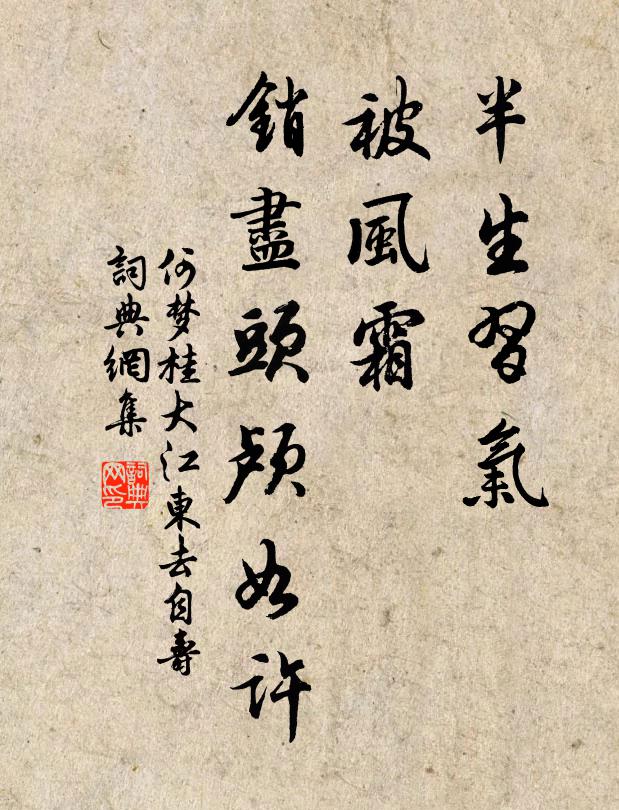 半生習氣
被風霜
銷盡頭顱如許
何梦桂大江東去自壽
詞典網集
詞典
网印